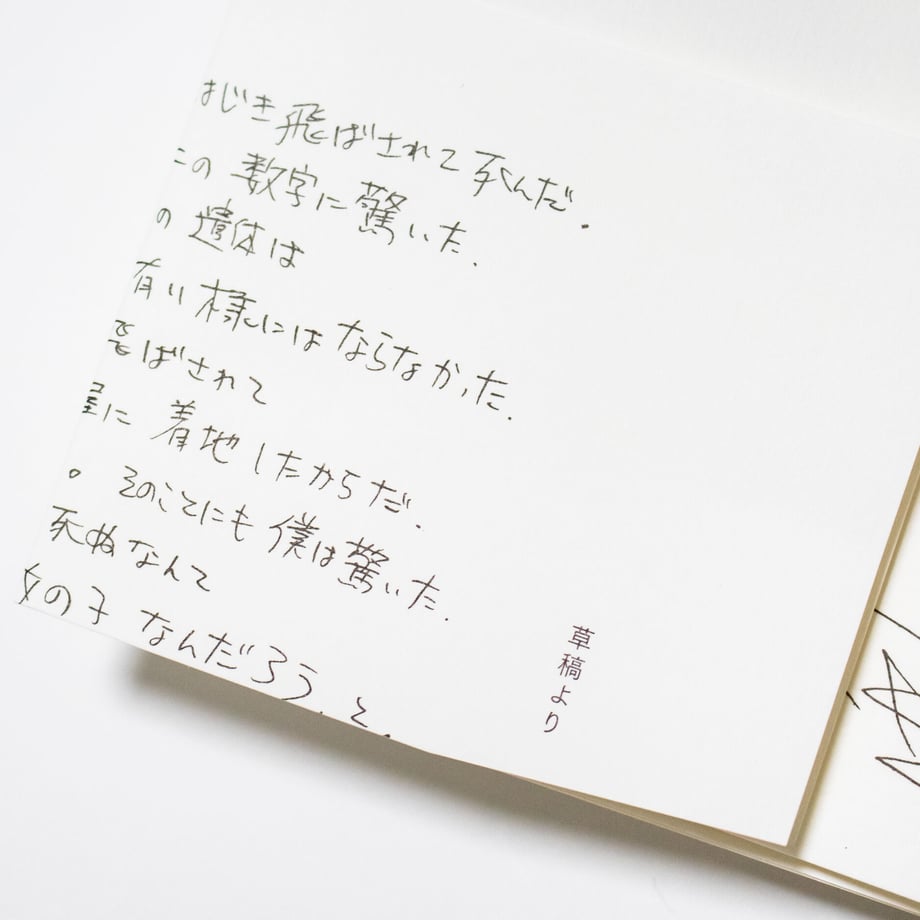 はじき飛ばされて死んだ.
この数字に驚いた.
の遺体は
有い様にはならなかった.
飛ばされて
に着地したからだ.
。そのことにも僕は驚いた.
死ぬなんて
女の子なんだろう、と.
草稿より